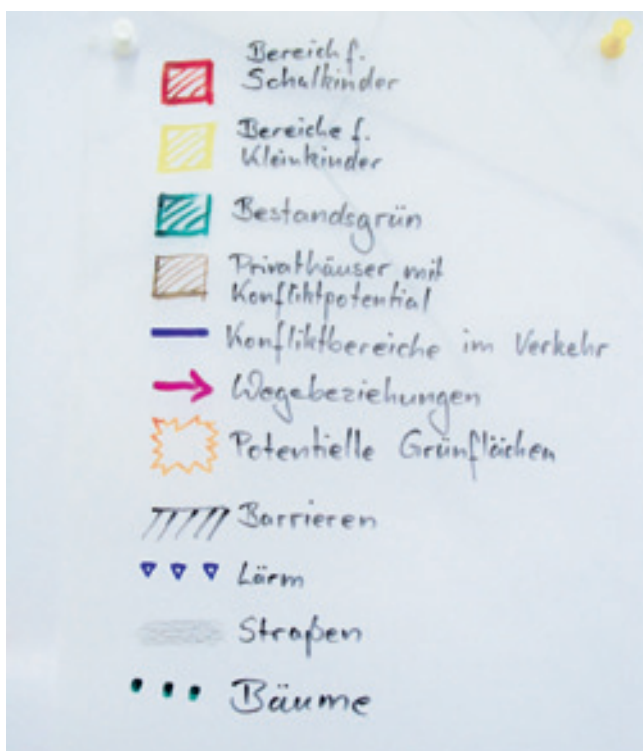 Bereich f.
Schulkinder
Bereiche f.
Kleinkinder
Bestandsgrün
Privathäuser mit
Konfliktpotential
Konfliktbereiche im Verkehr
Wegebeziehungen
Potentielle Grünflächen
Barrieren
Lärm
Straßen
Bäume